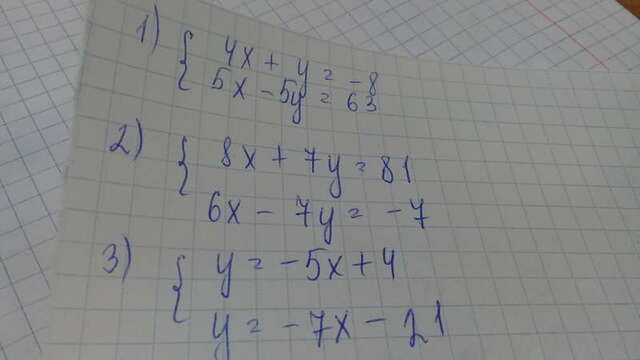 1) { 4x + y = -8
5x - 5y = 63
2) { 8x + 7y = 81
6x - 7y = -7
3) { y = -5x + 4
y = -7x - 21